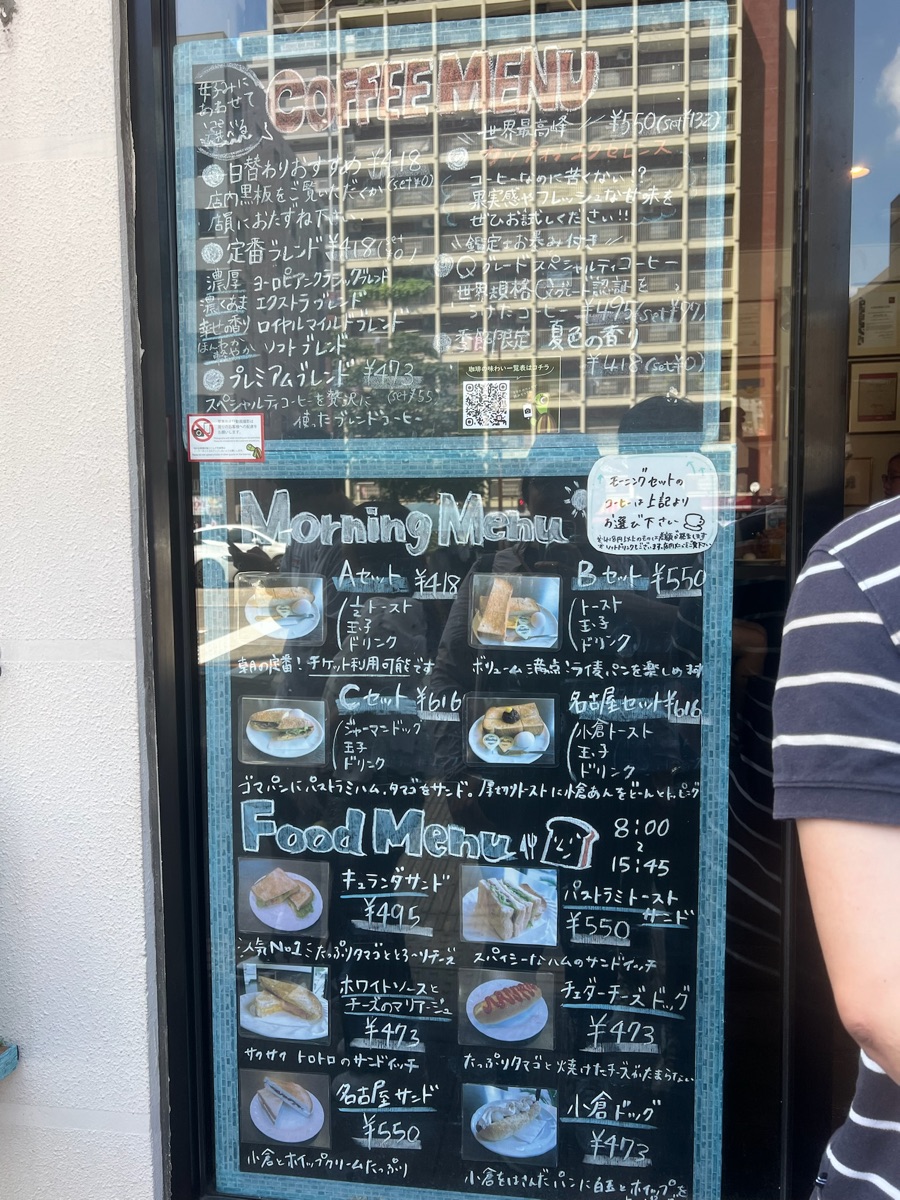 COFFEE MENU
お好みに
あわせて
選べる
日替わりおすすめ ¥418
店内黒板をご覧いただくか (set¥0)
店員におたずね下さい。
定番ブレンド ¥418 (set¥0)
濃厚 ヨーロピアンクラシックブレンド
濃くあま エクストラブレンド
幸せの香り ロイヤルマイルドブレンド
ほんわか
軽やか ソフトブレンド
プレミアムブレンド ¥473
スペシャルティコーヒーを贅沢に (set¥55)
使ったブレンドコーヒー
世界最高峰 ¥550 (set¥132)
カップオブエクセレンス
コーヒーなのに苦くない!?
果実感やフレッシュな甘味を
ぜひお試しください!!
鑑定士お墨み付き
Qグレードスペシャルティコーヒー
世界規格Qグレード認証を
うけたコーヒー ¥495 (set¥77)
季節限定 夏色の香り
¥418 (set¥0)
珈琲の味わい一覧表はコチラ
Morning Menu
モーニングセットの
コーヒーは上記より
お選び下さい
Aセット ¥418
½トースト
玉子
ドリンク
朝の定番!チケット利用可能です
Bセット ¥550
トースト
玉子
ドリンク
ボリューム満点!ライ麦パンを楽しめます
Cセット ¥616
ジャーマンドッグ
玉子
ドリンク
ゴマパンにパストラミハム、タマゴをサンド。
名古屋セット ¥616
小倉トースト
玉子
ドリンク
厚切りトーストに小倉あんをどーんとトッピング
Food Menu
8:00
～
15:45
キュランダサンド
¥495
人気No1!たっぷりタマゴととろ～りチーズ
パストラミトースト
サンド
¥550
スパイシーなハムのサンドイッチ
ホワイトソースと
チーズのマリアージュ
¥473
サクサク トロトロのサンドイッチ
チェダーチーズドッグ
¥473
たっぷりタマゴと焼けたチーズがたまらない
名古屋サンド
¥550
小倉とホイップクリームたっぷり
小倉ドッグ
¥473
小倉をはさんだパンに白玉とホイップを